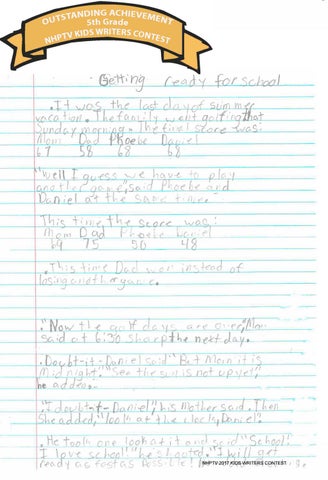 OUTSTANDING ACHIEVEMENT
5th Grade
NHPTV KIDS WRITERS CONTEST
Getting ready for school
.It was the last day of summer
vacation. The family went golfing that
Sunday morning. The final score was:
Mom Dad Phoebe Daniel
67 58 68 68
"Well I guess we have to play
another game, said Phoebe and
Daniel at the same time.
This time the score was:
Mom Dad Phoebe Daniel
69 75 50 48
.This time Dad won instead of
losing another game.
."Now the golf days are over," Mom
said at 6:30 sharp the next day.
.Doubt-it-Daniel said "But Mom it is
Midnight." "See the sun is not up yet,"
he added.
."I doubt-it-Daniel", his Mother said. Then
She added, "look at the clock, Daniel".
.He took one look at it and said "School!
I love school!" he shouted. "I will get
ready as fast as Possible!"
NHPTV 2017 KIDS WRITERS CONTEST